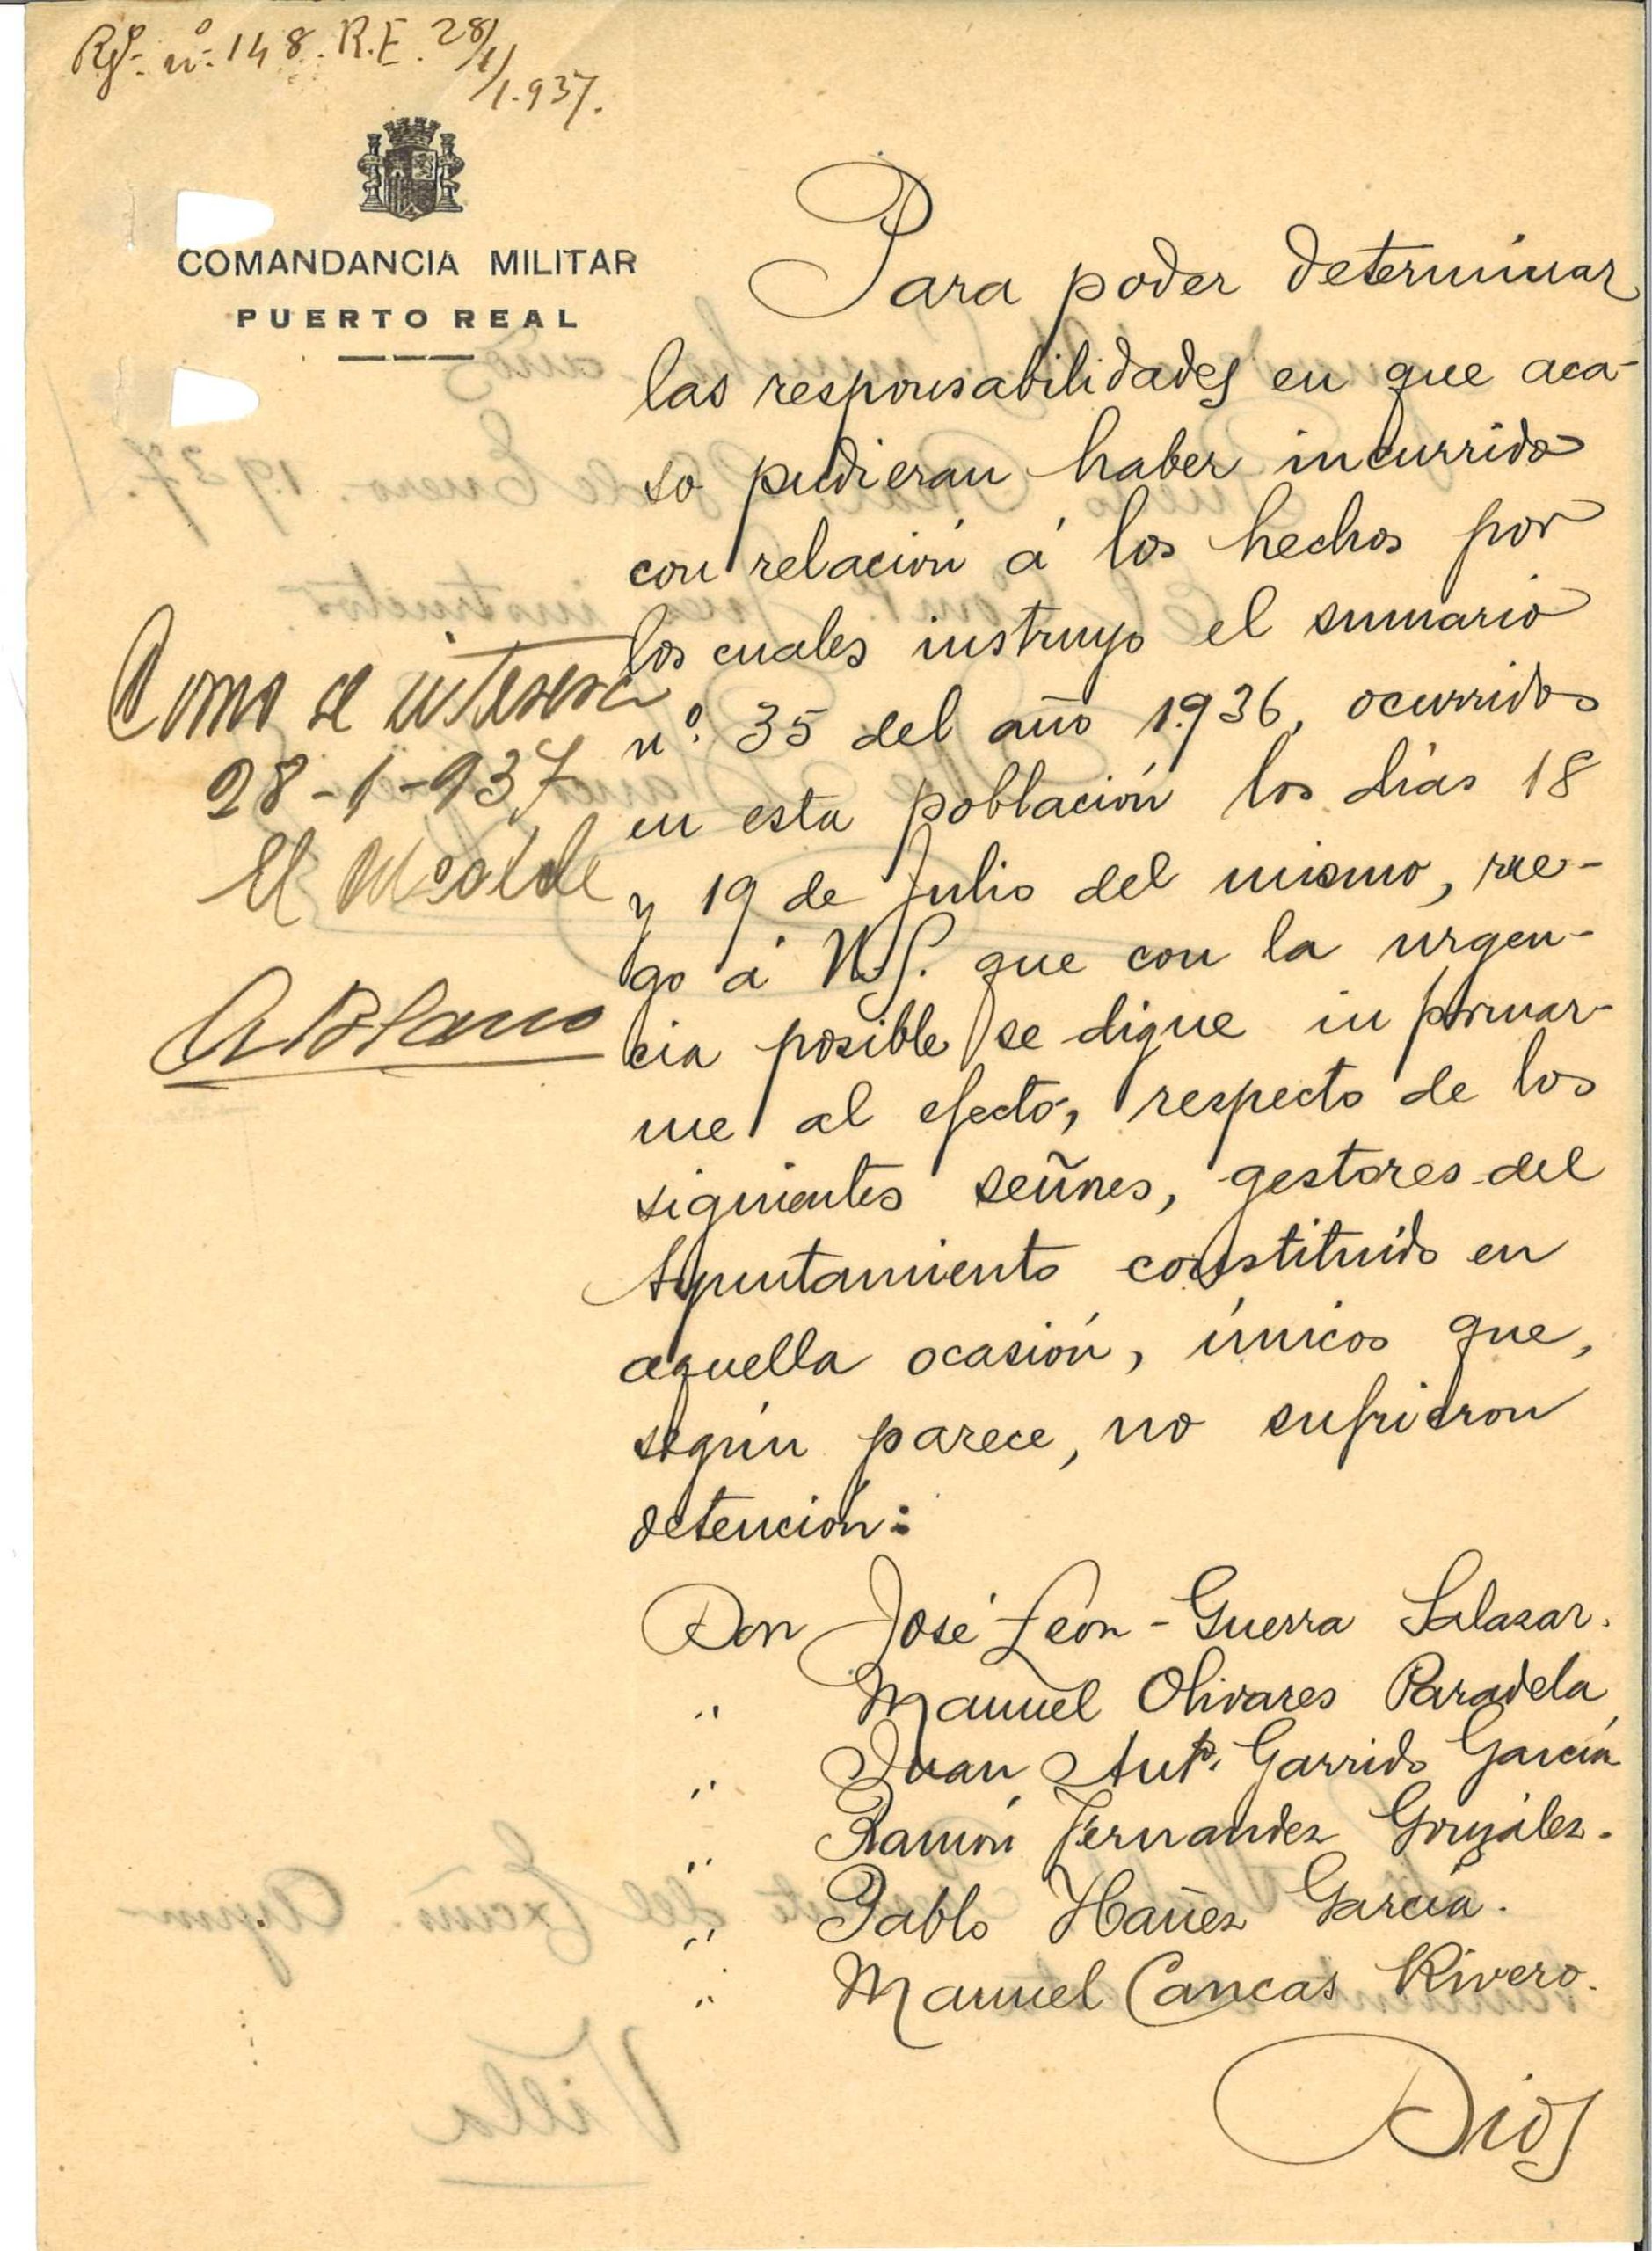 Rgº. nº. 148. R.E. 28/1/1.937.
COMANDANCIA MILITAR
PUERTO REAL
Para poder determinar
las responsabilidades en que aca-
so pudieran haber incurrido
con relación á los hechos por
los cuales instruyo el sumario
nº. 35 del año 1.936, ocurridos
en esta población los días 18
y 19 de Julio del mismo, rue-
go á V.S. que con la urgen-
cia posible se digne informar-
me al efecto, respecto de los
siguientes señores, gestores del
Ayuntamiento constituido en
aquella ocasión, únicos que,
según parece, no sufrieron
detención:
Don José León-Guerra Salazar.
" Manuel Olivares Paradela
" Juan Antº. Garrido García
" Ramón Fernandez González.
" Pablo Ybañez García.
" Manuel Cancas Rivero.
Dios
Como se interesa
28-1-937
El Alcalde